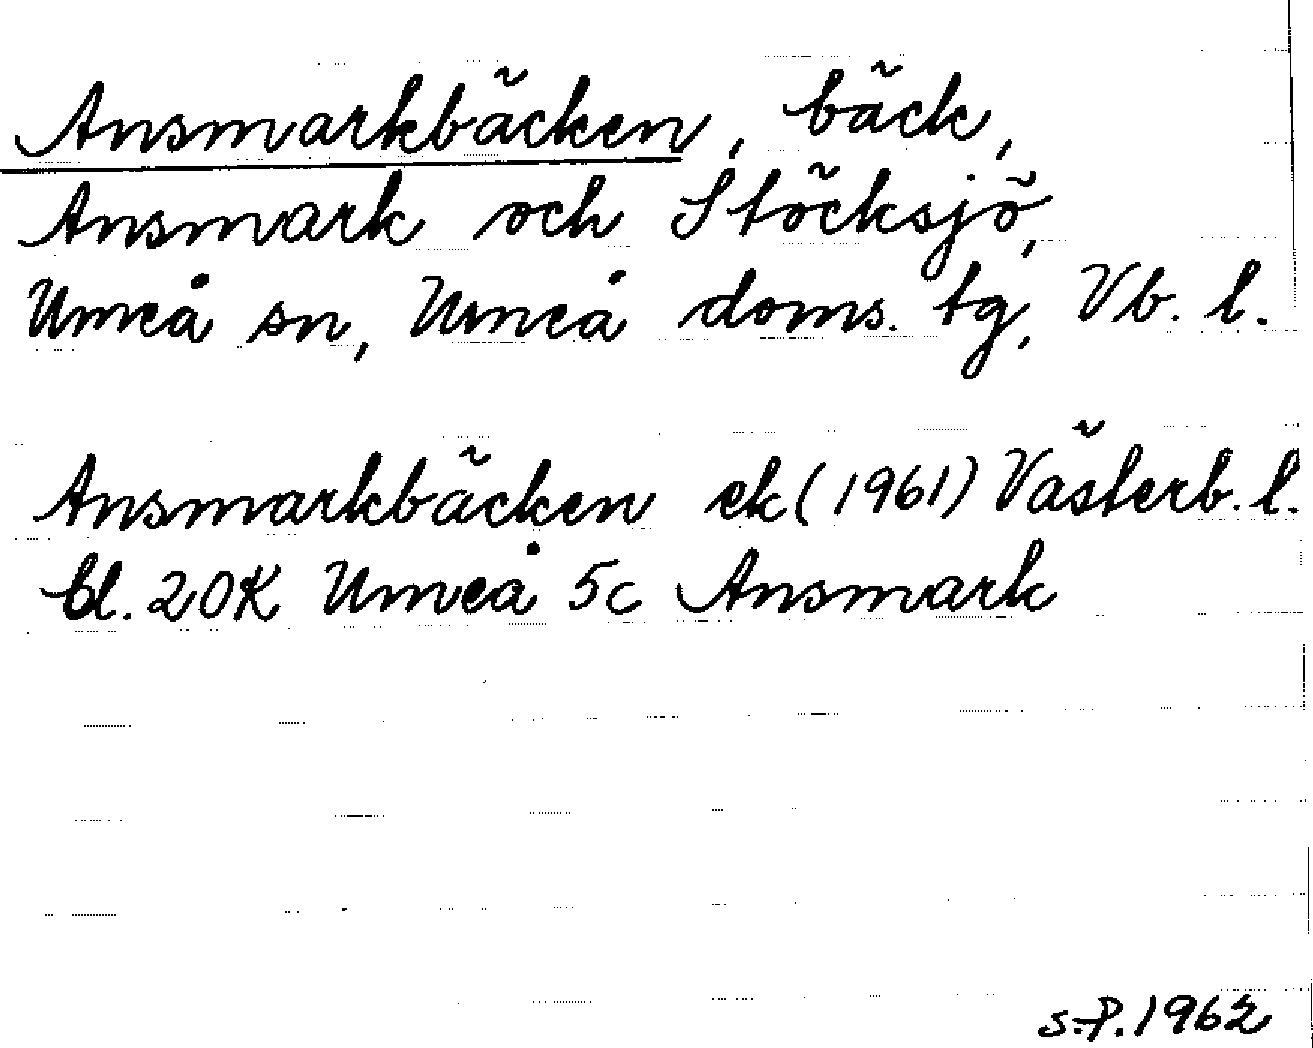 Ansmarkbäcken, bäck,
Ansmark och Stöcksjö,
Umeå sn, Umeå doms. tg, Vb. l.
Ansmarkbäcken ek (1961) Västerb. l.
bl. 20K Umeå 5c Ansmark
S.P. 1962